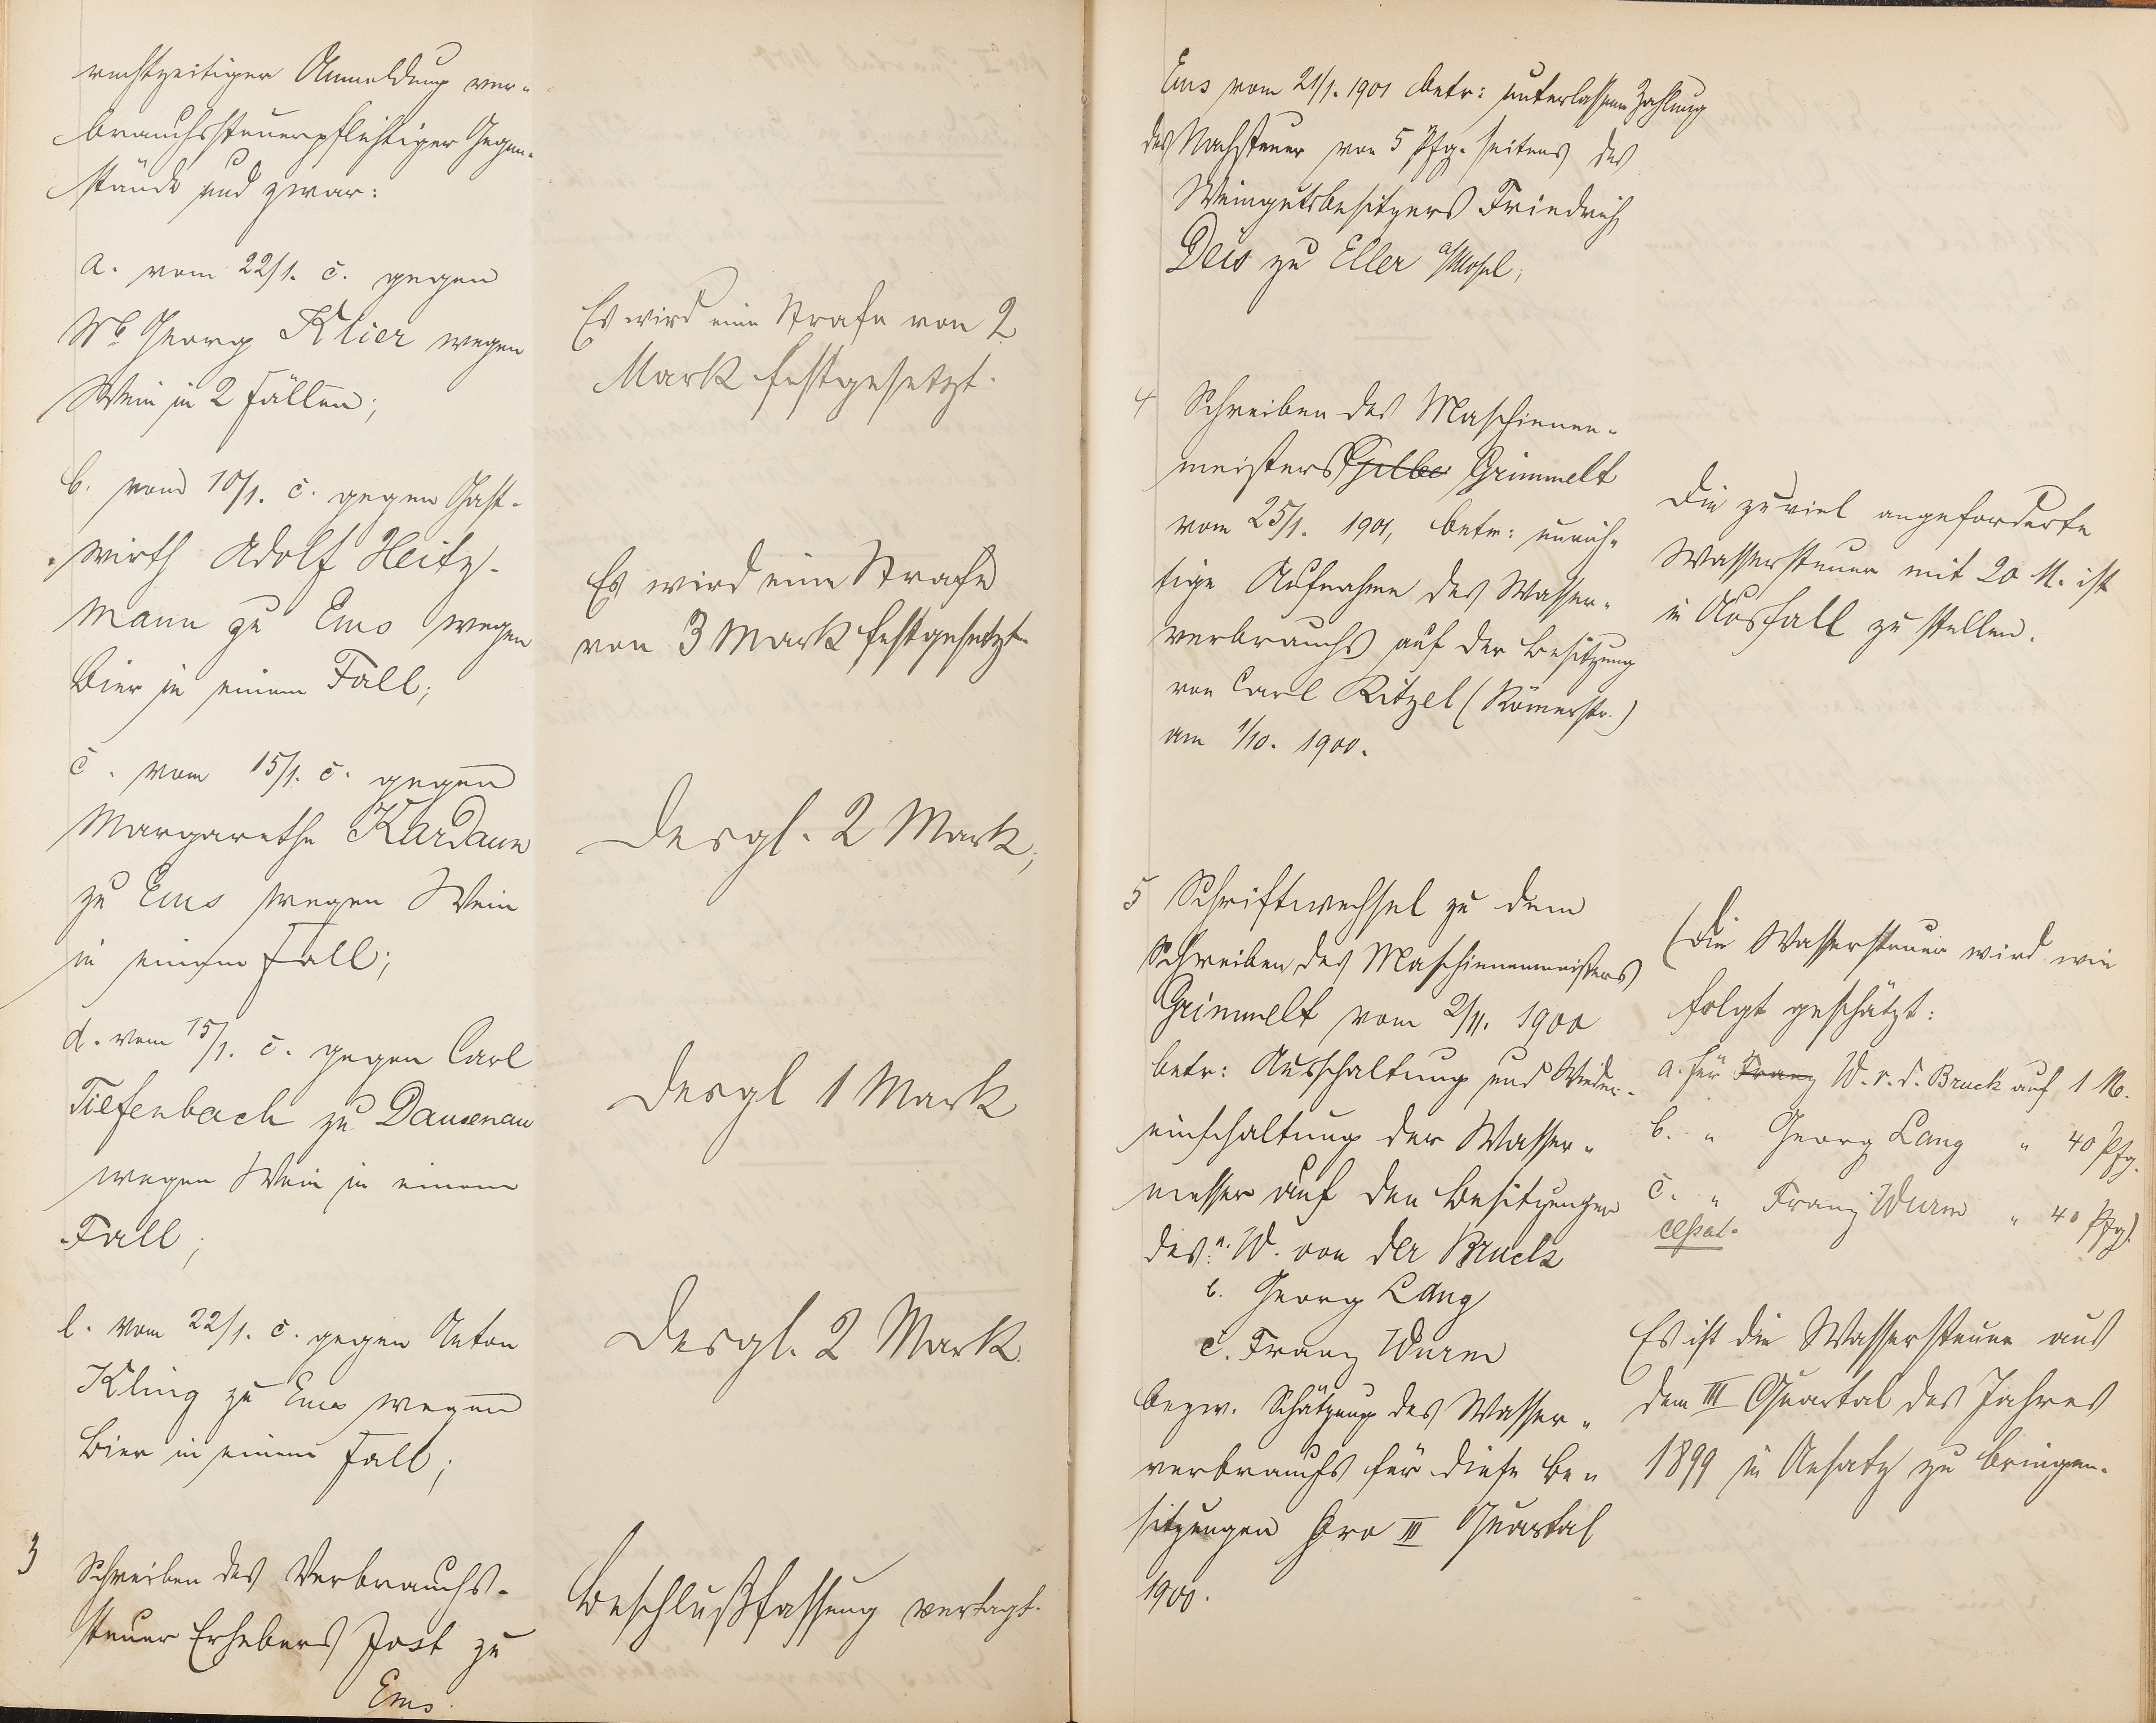 rechtzeitiger Anmeldung ver-
brauchssteuerpflichtiger Gegen-
stände und zwar:
a. vom 22/1. c. gegen
Georg Klier wegen
Wein in 2 Fällen;
Es wird eine Strafe von 2
Mark festgesetzt.
b. vom 10/1. c. gegen Gast-
wirth Adolf Heitz-
mann zu Ems wegen
Bier in einem Fall;
Es wird eine Strafe
von 3 Mark festgesetzt.
c. vom 15/1. c. gegen
Margarethe Kardaun
zu Ems wegen Wein
in einem Fall;
desgl. 2 Mark;
d. vom 15/1. c. gegen Carl
Tiefenbach zu Dausenau
wegen Wein in einem
Fall;
desgl 1 Mark
e. vom 22/1. c. gegen Anton
Kling zu Ems wegen
Bier in einem Fall;
desgl. 2 Mark.
3 Schreiben des Verbrauchs-
steuer Erhebers Jost zu
Ems.
Beschlußfassung vertagt.
Ems vom 21/1. 1901 betr: unterlassene Zahlung
der Nachsteuer von 5 Pfg. seitens des
Weingutsbesitzers Friedrich
Deis zu Eller a/Mosel;
4 Schreiben des Maschienen-
meisters Grimmelt
vom 25/1. 1901, betr: unrich-
tige Aufnahme des Wasser-
verbrauchs auf der Besitzung
von Carl Kitzel (Römerstr.)
am 1/10. 1900.
Die zuviel angeforderte
Wassersteuer mit 20 M. ist
in Ausfall zu stellen.
5 Schriftwechsel zu dem
Schreiben des Maschienenmeisters
Grimmelt vom 2/11. 1900
betr: Ausschaltung und Wieder-
einschaltung der Wasser-
messer auf den Besitzungen
des a. W. von der Bruck
b. Georg Lang
c. Franz Wurm
bezw. Schätzung des Wasser-
verbrauchs für diese Be-
sitzungen pro III Quartal
1900.
(Die Wassersteuer wird wie
folgt geschätzt:
a. für Franz W. v. d. Bruck auf 1 M.
b. " Georg Lang " 40 Pfg.
c. " Franz Wurm " 40 Pfg).
cessat.
Es ist die Wassersteuer aus
dem III Quartal des Jahres
1899 in Ansatz zu bringen.